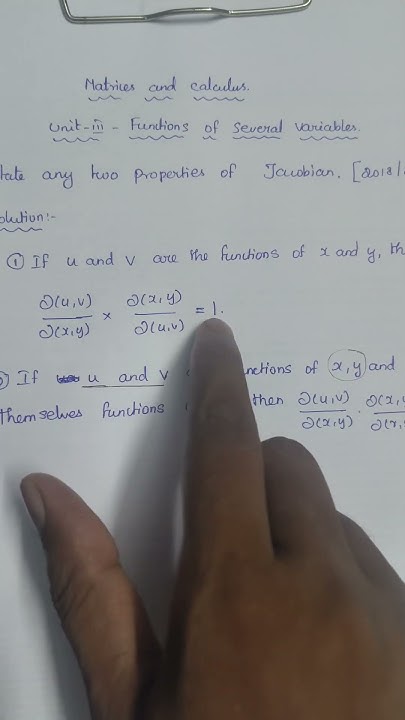 Matrices and calculus.
Unit-III - Functions of Several variables.
tate any two Properties of Jacobian. [2018/
olution:-
① If u and v are the functions of x and y, th
∂(u,v)/∂(x,y) × ∂(x,y)/∂(u,v) = 1.
If u and v nctions of x,y and
themselves functions then ∂(u,v)/∂(x,y) . ∂(x,